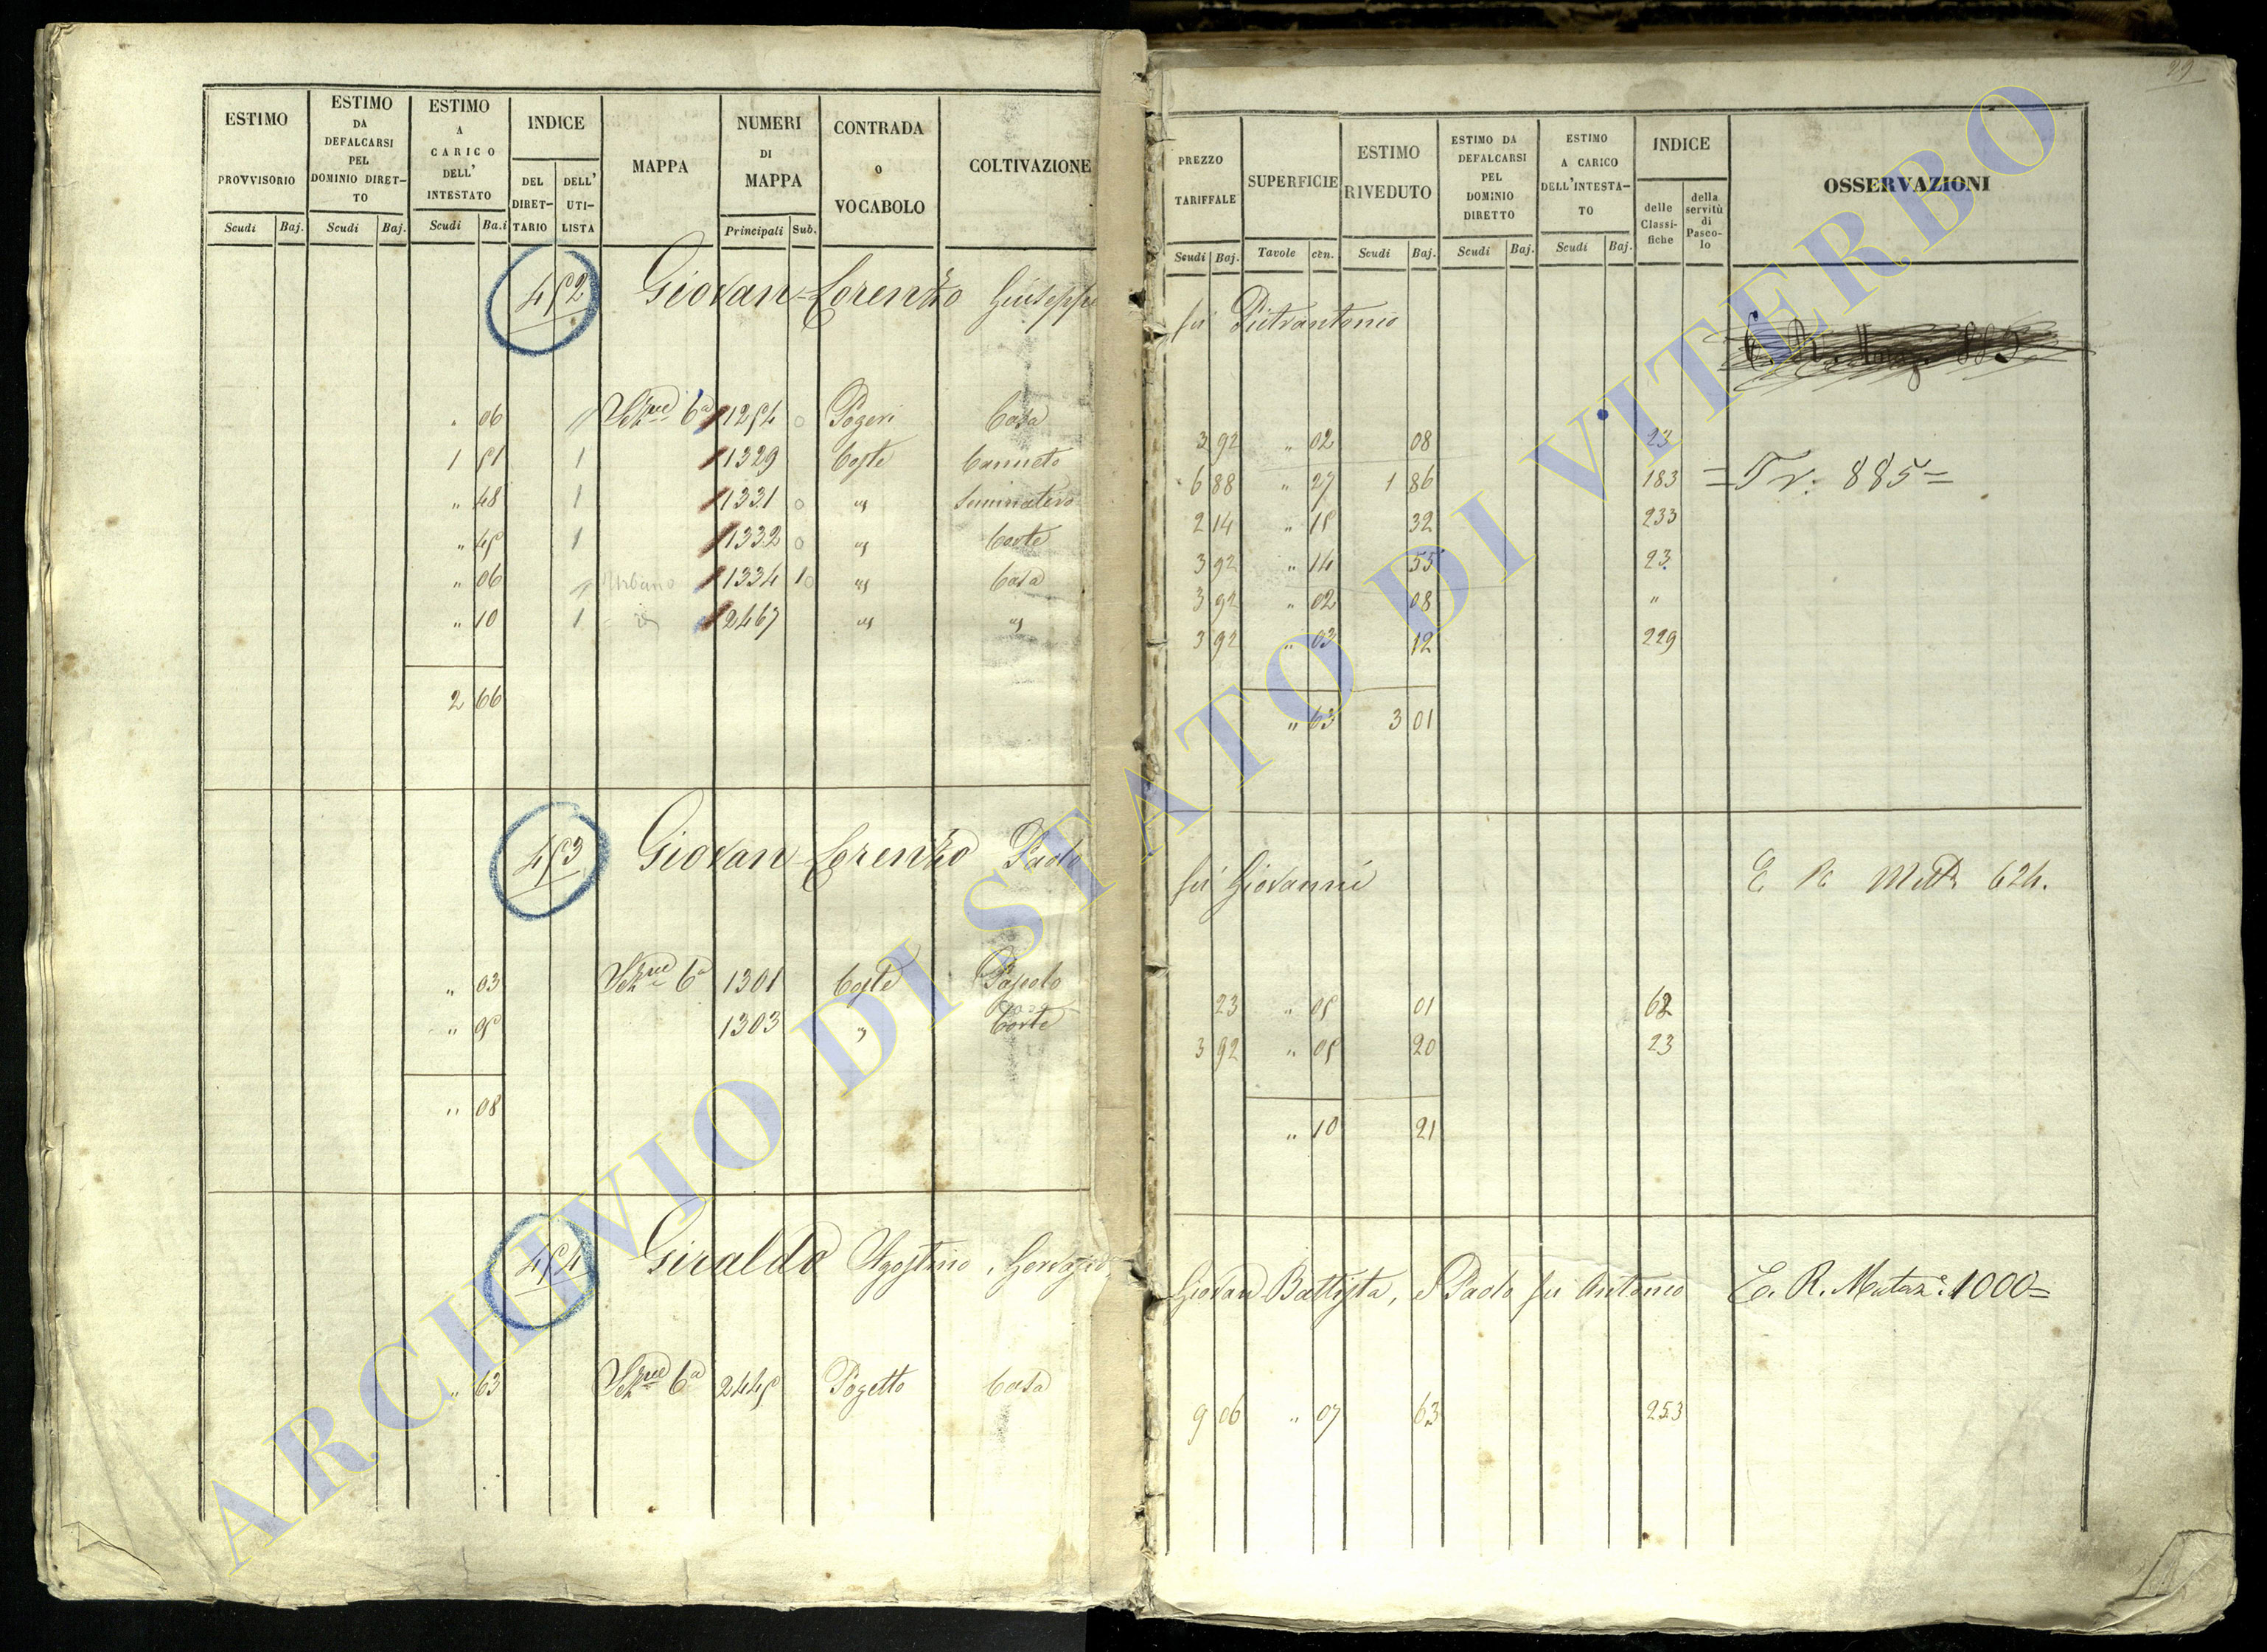 29
ESTIMO PROVVISORIO
ESTIMO DA DEFALCARSI PEL DOMINIO DIRET-TO
ESTIMO A CARICO DELL' INTESTATO
INDICE
DEL DIRET-TARIO
DELL' UTI-LISTA
MAPPA
NUMERI DI MAPPA
CONTRADA o VOCABOLO
COLTIVAZIONE
Scudi Baj. Scudi Baj. Scudi Ba.i Principali Sub.
PREZZO TARIFFALE
SUPERFICIE
ESTIMO RIVEDUTO
ESTIMO DA DEFALCARSI PEL DOMINIO DIRETTO
ESTIMO A CARICO DELL'INTESTA-TO
INDICE
delle Classi-fiche
della servitù di Pasco-lo
OSSERVAZIONI
Scudi Baj. Tavole cen. Scudi Baj. Scudi Baj. Scudi Baj.
452 Giovan-Lorenzo Giuseppe fu Pietrantonio
" 06 1 6a 1254 0 Pogeri Casa 3 92 " 02 08 23
1 51 1 1329 Coste Canneto 6 88 " 27 1 86 183 = Tr: 885 =
" 48 1 1331 0 " Seminativo 2 14 " 15 32 233
" 45 1 1332 0 " Corte 3 92 " 14 55 23
" 06 1 Urbano 1334 1 0 " Casa 3 92 " 02 08 "
" 10 1 id 2467 " " 3 92 " 03 12 229
2 66 " 63 3 01
453 Giovan-Lorenzo Paolo fu Giovanni E R 624.
" 03 6a 1301 Coste Pascolo 23 " 05 01 62
" 05 1303 " Corte 3 92 " 05 20 23
" 08 " 10 21
454 Giraldo Agostino, Giovan Battista, e Paolo fu Antonio E. R. Mutaz.e 1000=
" 63 6a 2445 Pogetto Casa 9 06 " 07 63 253
ARCHIVIO DI STATO DI VITERBO